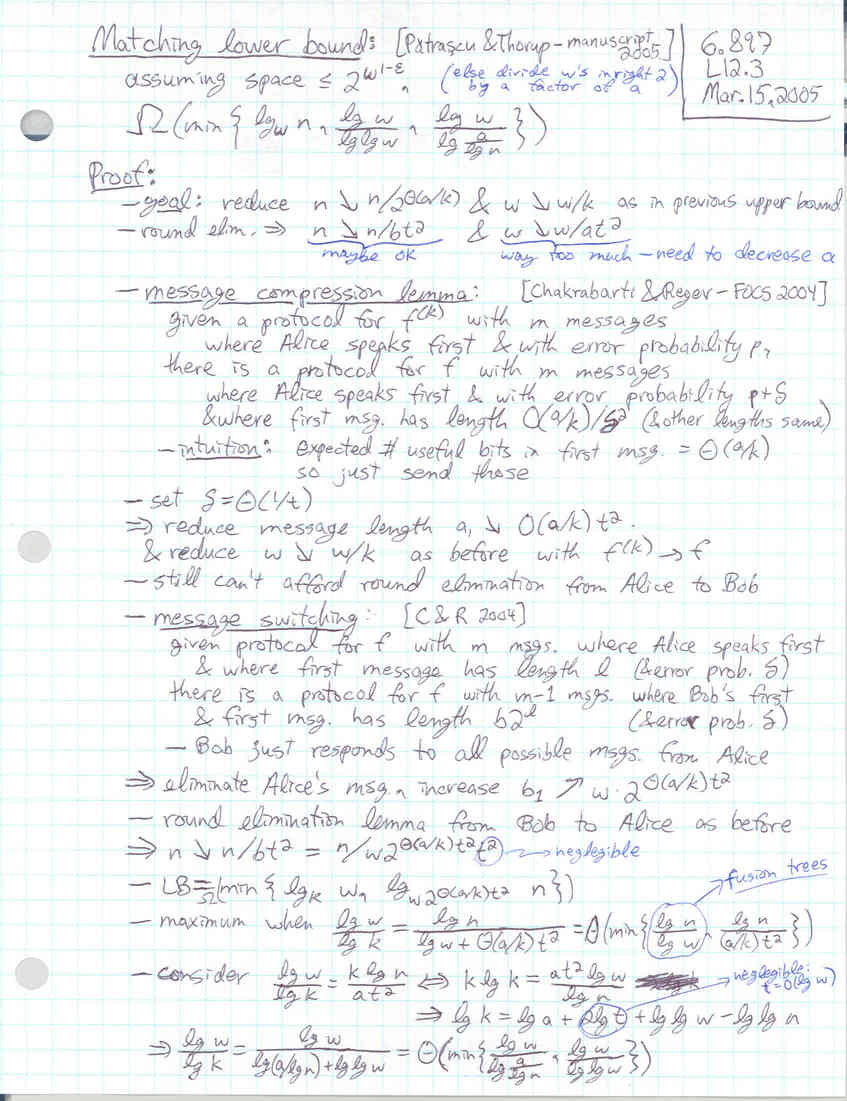 Matching lower bound: [Pătraşcu & Thorup - manuscript 2005]
6.897
L12.3
Mar. 15, 2005
assuming space ≤ 2^{w^{1-ε}}, (else divide w's in right 2 by a factor of a)
Ω(min{ lg_w n, lg w / lg lg w, lg w / lg (a / lg n) })
Proof:
- goal: reduce n ↘ n/2^{Θ(a/k)} & w ↘ w/k as in previous upper bound
- round elim. ⇒ n ↘ n/bt² & w ↘ w/at²
maybe ok way too much - need to decrease a
- message compression lemma: [Chakrabarti & Regev - FOCS 2004]
given a protocol for f^{(k)} with m messages
where Alice speaks first & with error probability p,
there is a protocol for f with m messages
where Alice speaks first & with error probability p+δ
& where first msg. has length O(a/k)/δ² (& other lengths same)
- intuition: expected # useful bits in first msg. = Θ(a/k)
so just send those
- set δ = Θ(1/t)
⇒ reduce message length a, ↘ O(a/k) t².
& reduce w ↘ w/k as before with f^{(k)} → f
- still can't afford round elimination from Alice to Bob
- message switching: [C & R 2004]
given protocol for f with m msgs. where Alice speaks first
& where first message has length l (& error prob. δ)
there is a protocol for f with m-1 msgs. where Bob's first
& first msg. has length b2^l (& error prob. δ)
- Bob just responds to all possible msgs. from Alice
⇒ eliminate Alice's msg., increase b₁ ↗ w·2^{Θ(a/k)t²}
- round elimination lemma from Bob to Alice as before
⇒ n ↘ n/bt² = n/w2^{Θ(a/k)t²}t² → negligible
- LB = Ω(min{ lg_k w, lg_{w2^{Θ(a/k)t²}} n })
→ fusion trees
- maximum when lg w / lg k = lg n / (lg w + Θ(a/k)t²) = Θ(min{ lg n / lg w, lg n / (a/k)t² })
- consider lg w / lg k = k lg n / at² ⇔ k lg k = at² lg w / lg n
negligible: t = O(lg w)
⇒ lg k = lg a + 2lg t + lg lg w - lg lg n
⇒ lg w / lg k = lg w / (lg(a/lg n) + lg lg w) = Θ(min{ lg w / lg (a / lg n), lg w / lg lg w })